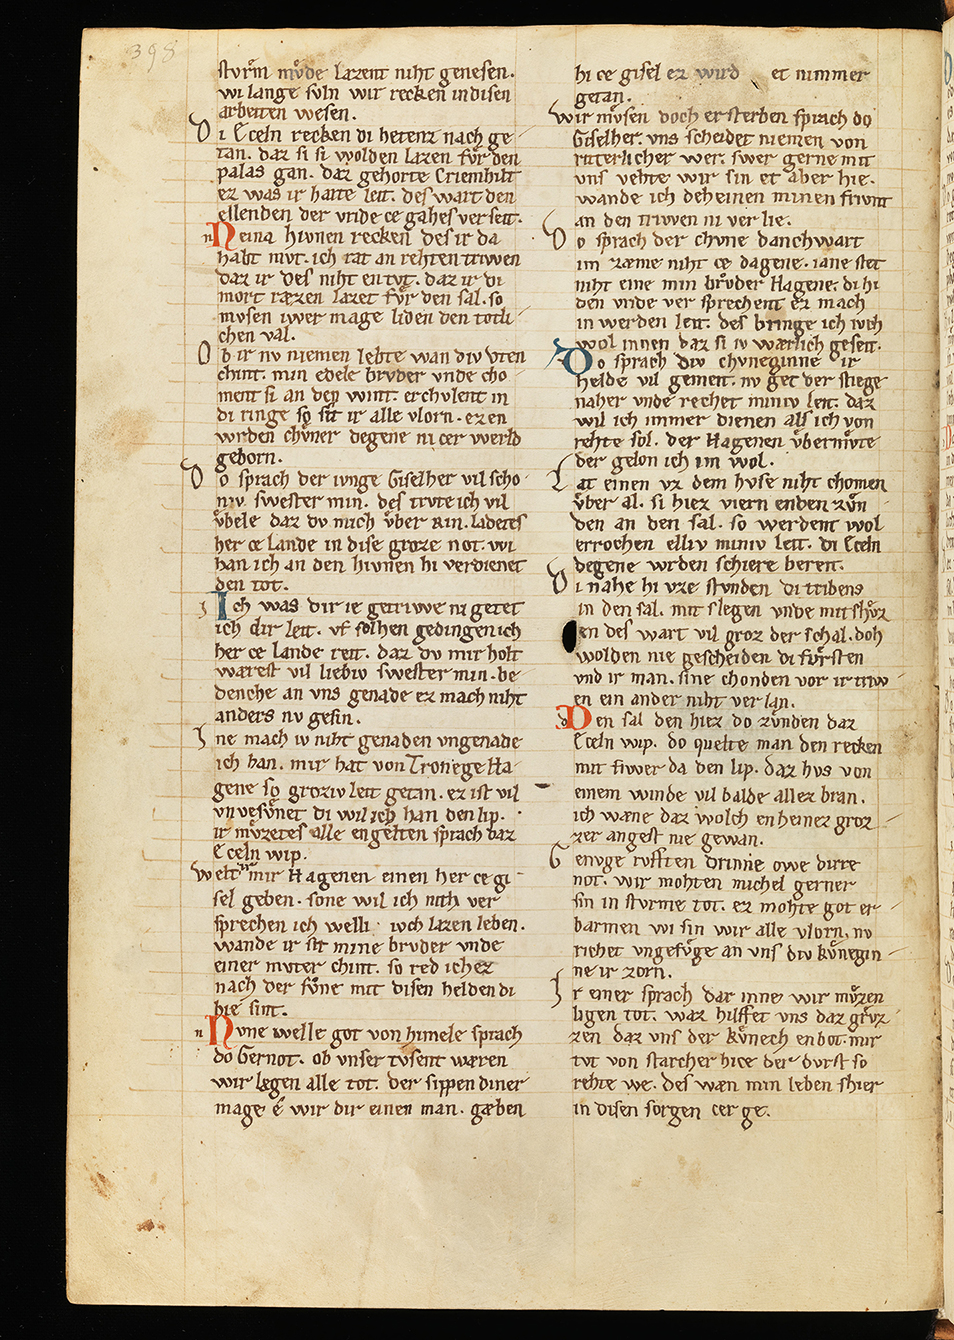 398
stvrm mvͦde lazent niht genesen.
wi lange svln wir recken in disen
arbeiten wesen.
Di Eceln recken di hetenz nach ge
tan. daz si si wolden lazen fvͤr den
palas gan. daz gehorte Criemhilt
ez was ir harte leit. des wart den
ellenden der vride ce gahes verseit.
n Neina hivnen recken des ir da
habt mvt. ich rat an rehten triwen
daz ir des niht entvͦt. daz ir di
mort ræzen lazet fvͤr den sal. so
mvsen iwer mage liden den totli
chen val.
Ob ir nv niemen lebte wan div vten
chint. min edele brvder vnde cho
ment si an den wint. erchvlent in
di ringe so sit ir alle vlorn. ez en
wrden chvͤner degene ni cer werld
geborn.
Do sprach der ivnge Giselher vil scho
niv swester min. des trvte ich vil
vͤbele daz dv mich vͤber Rin. ladetes
her ce lande in dise groze not. wi
han ich an den hivnen hi verdienet
den tot.
i Ich was dir ie getriwe ni getet
ich dir leit. vf solhen gedingen ich
her ce lande reit. daz dv mir holt
wærest vil liebiv swester min. be
denche an vns genade ez mach niht
anders nv gesin.
Ine mach iv niht genaden vngenade
ich han. mir hat von Tronege Ha
gene so groziv leit getan. ez ist vil
vnvesvͤnet di wil ich han den lip.
ir mvͤzetes alle engelten sprach daz
Eceln wip.
Welt mir Hagenen einen her ce gi
sel geben. sone wil ich niht ver
sprechen ich welli iwch lazen leben.
wande ir sit mine brvder vnde
einer mvter chint. so red ich ez
nach der svͦne mit disen helden di
hie sint.
n Nvne welle got von himele sprach
do Gernot. ob vnser tvsent wæren
wir legen alle tot. der sippen diner
mage e wir dir einen man. gæben
hi ce gisel ez wird et nimmer
getan.
Wir mvͤsen doch ersterben sprach do
Giselher. vns scheidet niemen von
ritterlicher wer. swer gerne mit
vns vehte wir sin et aber hie.
wande ich deheinen minen frivnt
an den triwen ni ver lie.
Do sprach der chvne Danchwart
im zæme niht ce dagene. iane stet
niht eine min brvͦder Hagene. di hi
den vride ver sprechent ez mach
in werden leit. des bringe ich iwch
wol innen daz si iv wærlich geseit.
Do sprach div chvneginne ir
helde vil gemeit. nv get der stiege
naher vnde rechet miniv leit. daz
wil ich immer dienen als ich von
rehte sol. der Hagenen vͤbermvͤte
der gelon ich im wol.
Lat einen vz dem hvse niht chomen
vͤber al. si hiez viern enden zvn
den an den sal. so werdent wol
errochen elliv miniv leit. di Eceln
degene wrden schiere bereit.
Di nahe hi vze stvnden di tribens
in den sal. mit slegen vnde mit shvͤz
en des wart vil groz der schal. doh
wolden nie gescheiden di fvͤrsten
vnd ir man. sine chonden vor ir triw
en ein ander niht ver lan.
d Den sal den hiez do zvnden daz
Eceln wip. do qvelte man den recken
mit fiwer da den lip. daz hvs von
einem winde vil balde allez bran.
ich wæne daz wolch enheinez groz
zer angest nie gewan.
Genvge rvfften drinne owe dirre
not. wir mohten michel gerner
sin in stvrme tot. ez mohte got er
barmen wi sin wir alle vlorn. nv
richet vngefvͤge an vns div kvͤnegin
ne ir zorn.
Ir einer sprach dar inne wir mvͤzen
ligen tot. waz hilffet vns daz grvͤz
zen daz vns der kvͤnech enbot. mir
tvt von starcher hice der dvrst so
rehte we. des wæn min leben shier
in disen sorgen cer ge.